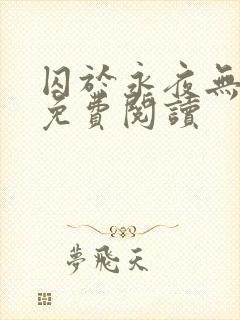 囚於永夜無
免費閱讀
夢飛天